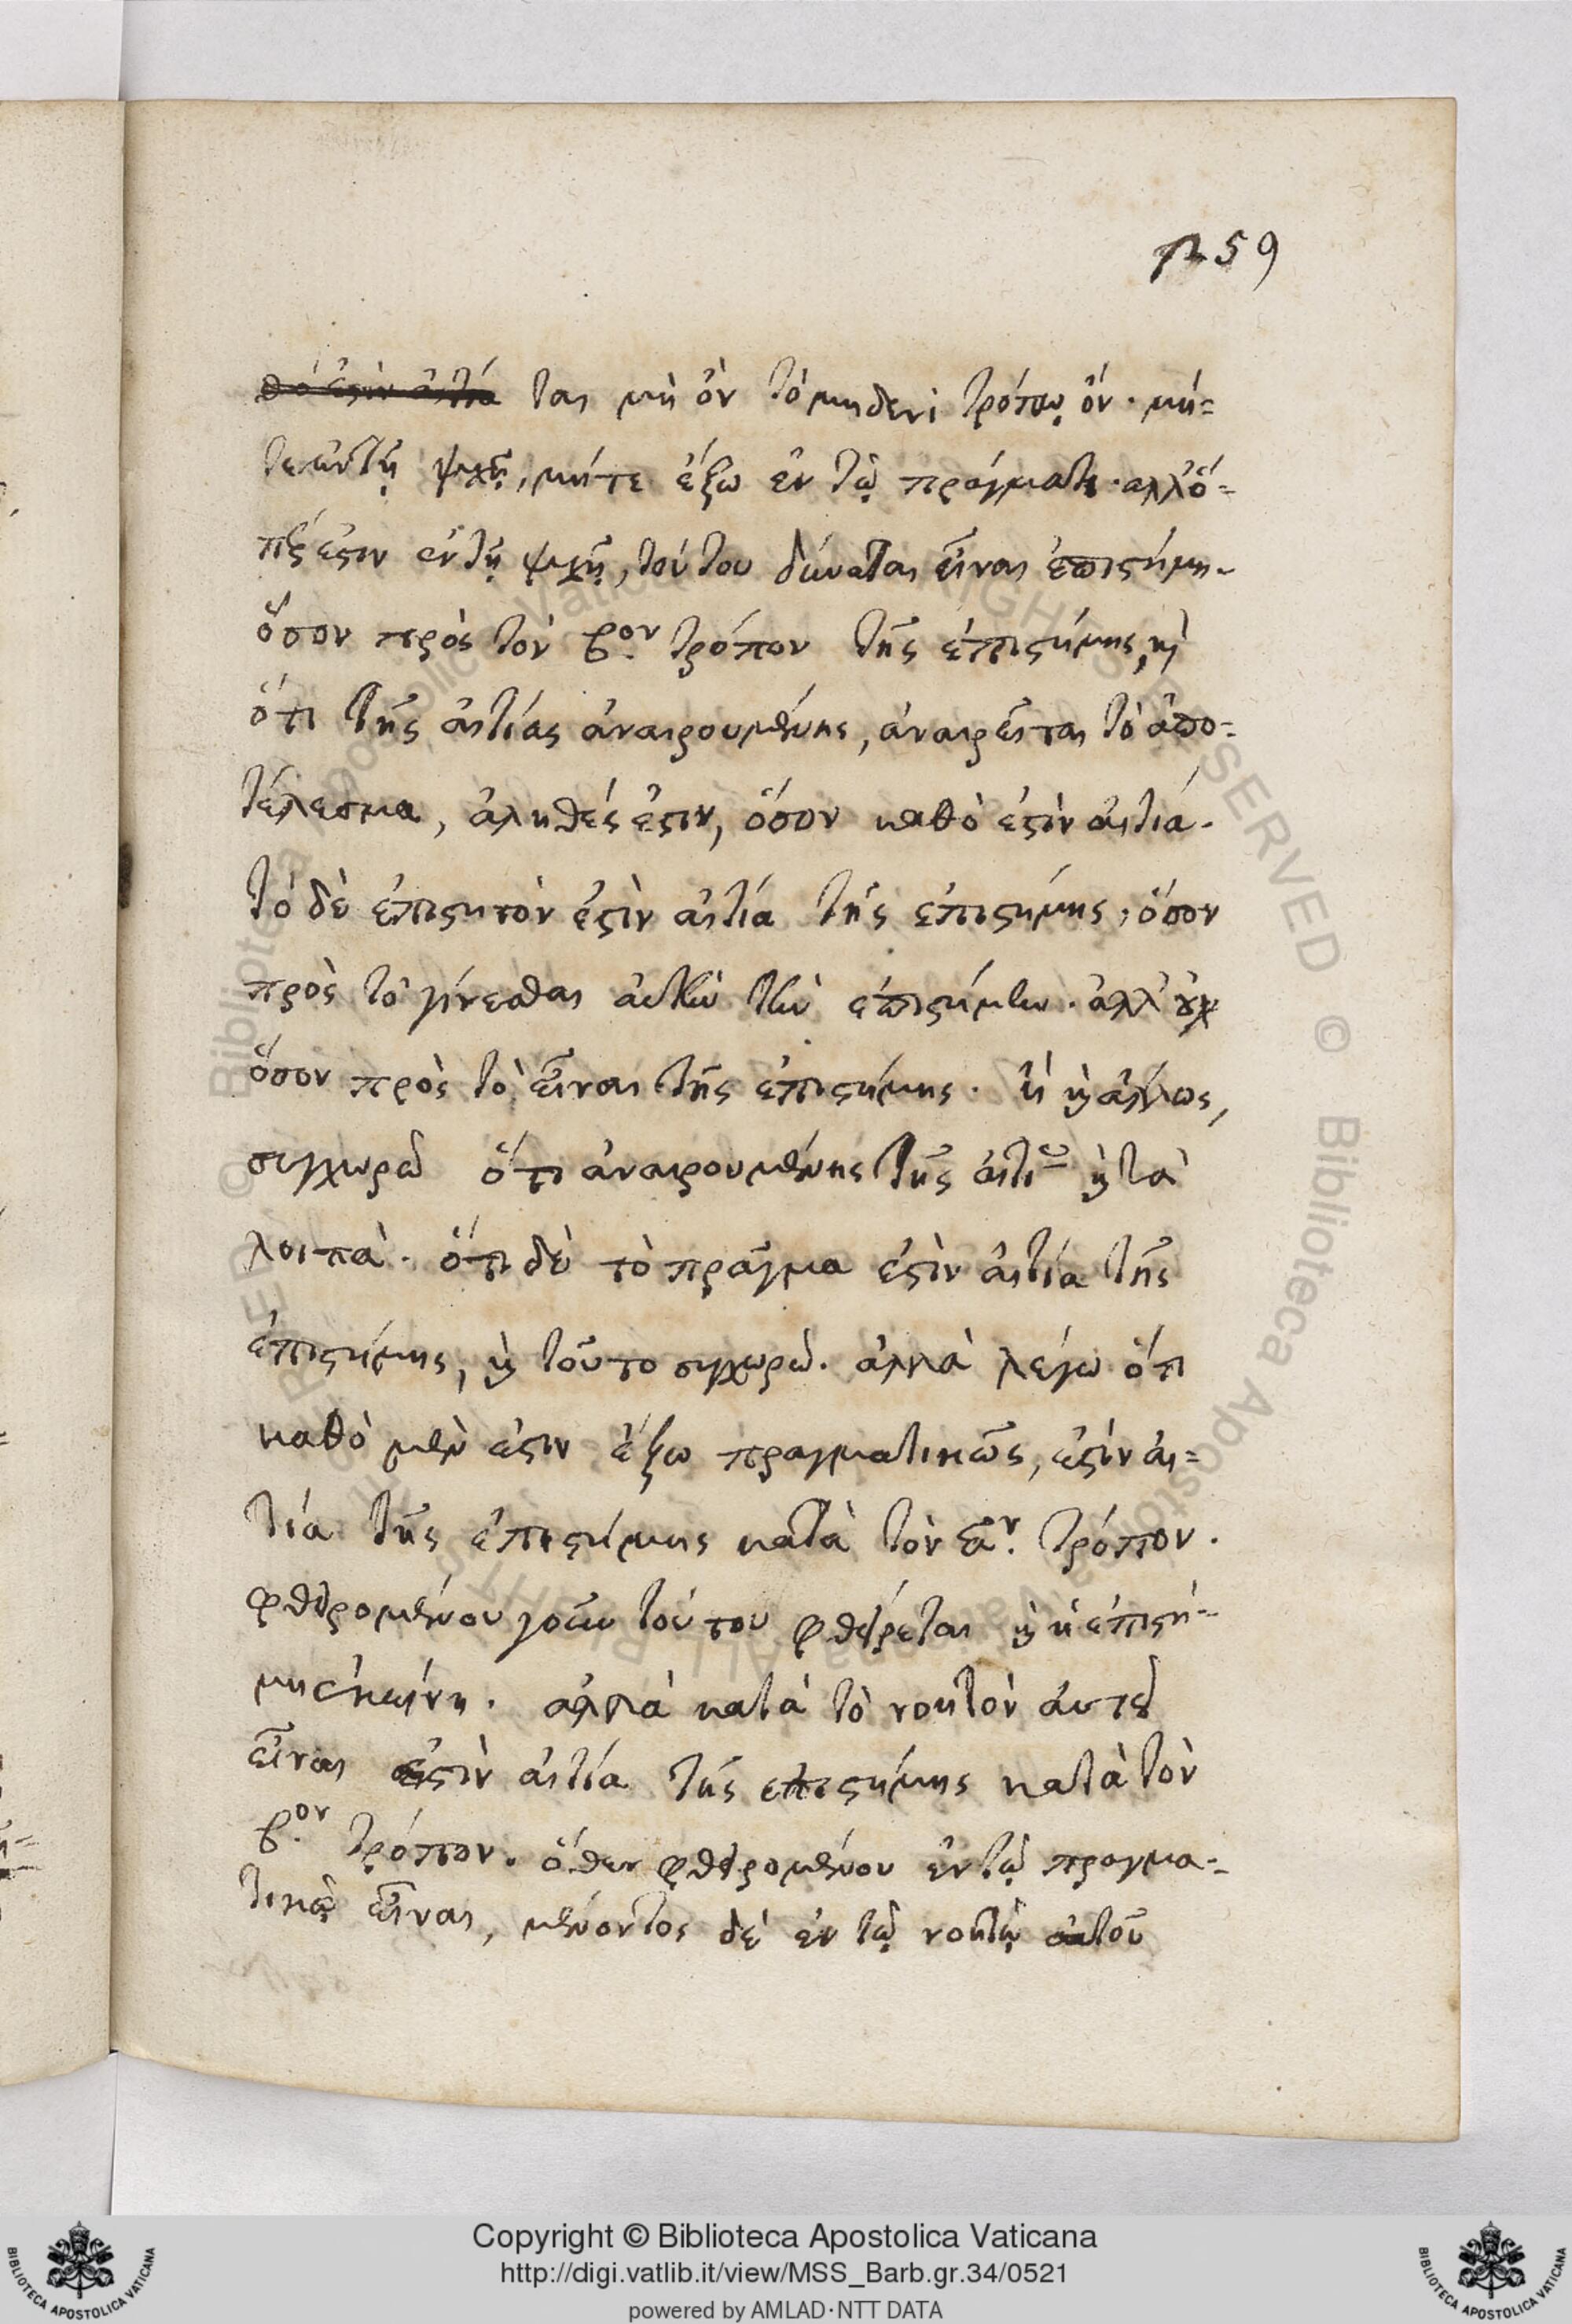 259
θό ἐστιν αἰτία ται μὴ ὂν τὸ μηδενὶ τρόπῳ ὄν. μή=
τε ἐν τῇ ψυχῇ, μήτε ἔξω ἐν τῷ πράγματι. ἀλλ' ὅ=
πέρ ἐστιν ἐν τῇ ψυχῇ, τούτου δύναται εἶναι ἐπιστήμη.
ὅσον πρὸς τὸν βον τρόπον τῆς ἐπιστήμης, καὶ
ὅτι τῆς αἰτίας ἀναιρουμένης, ἀναιρεῖται τὸ ἀπο=
τέλεσμα, ἀληθές ἐστιν, ὅσον καθὸ ἐστὶν αἰτία.
τὸ δὲ ἐπιστητὸν ἐστὶν αἰτία τῆς ἐπιστήμης, ὅσον
πρὸς τὸ γίνεσθαι αὐτὴν τὴν ἐπιστήμην. ἀλλ' οὐχ
ὅσον πρὸς τὸ εἶναι τῆς ἐπιστήμης. ἢ καὶ ἄλλως,
συγχωρῶ ὅτι ἀναιρουμένης τῆς αἰτι καὶ τὰ
λοιπά. ὅτι δὲ τὸ πρᾶγμα ἐστὶν αἰτία τῆς
ἐπιστήμης, καὶ τοῦτο συγχωρῶ. ἀλλὰ λέγω ὅτι
καθὸ μέν ἐστιν ἔξω πραγματικῶς, ἐστὶν αἰ=
τία τῆς ἐπιστήμης κατὰ τὸν αν. τρόπον.
φθειρομένου γοῦν τούτου φθείρεται καὶ ἡ ἐπιστή=
μη ἐκείνη. ἀλλὰ κατὰ τὸ νοητὸν αὐτοῦ
εἶναι ἐστὶν αἰτία τῆς ἐπιστήμης κατὰ τὸν
βον τρόπον. ὅθεν φθειρομένου ἐν τῷ πραγμα=
τικῷ εἶναι, μένοντος δὲ ἐν τῷ νοητῷ αὐτοῦ
Copyright © Biblioteca Apostolica Vaticana
http://digi.vatlib.it/view/MSS_Barb.gr.34/0521
powered by AMLAD·NTT DATA